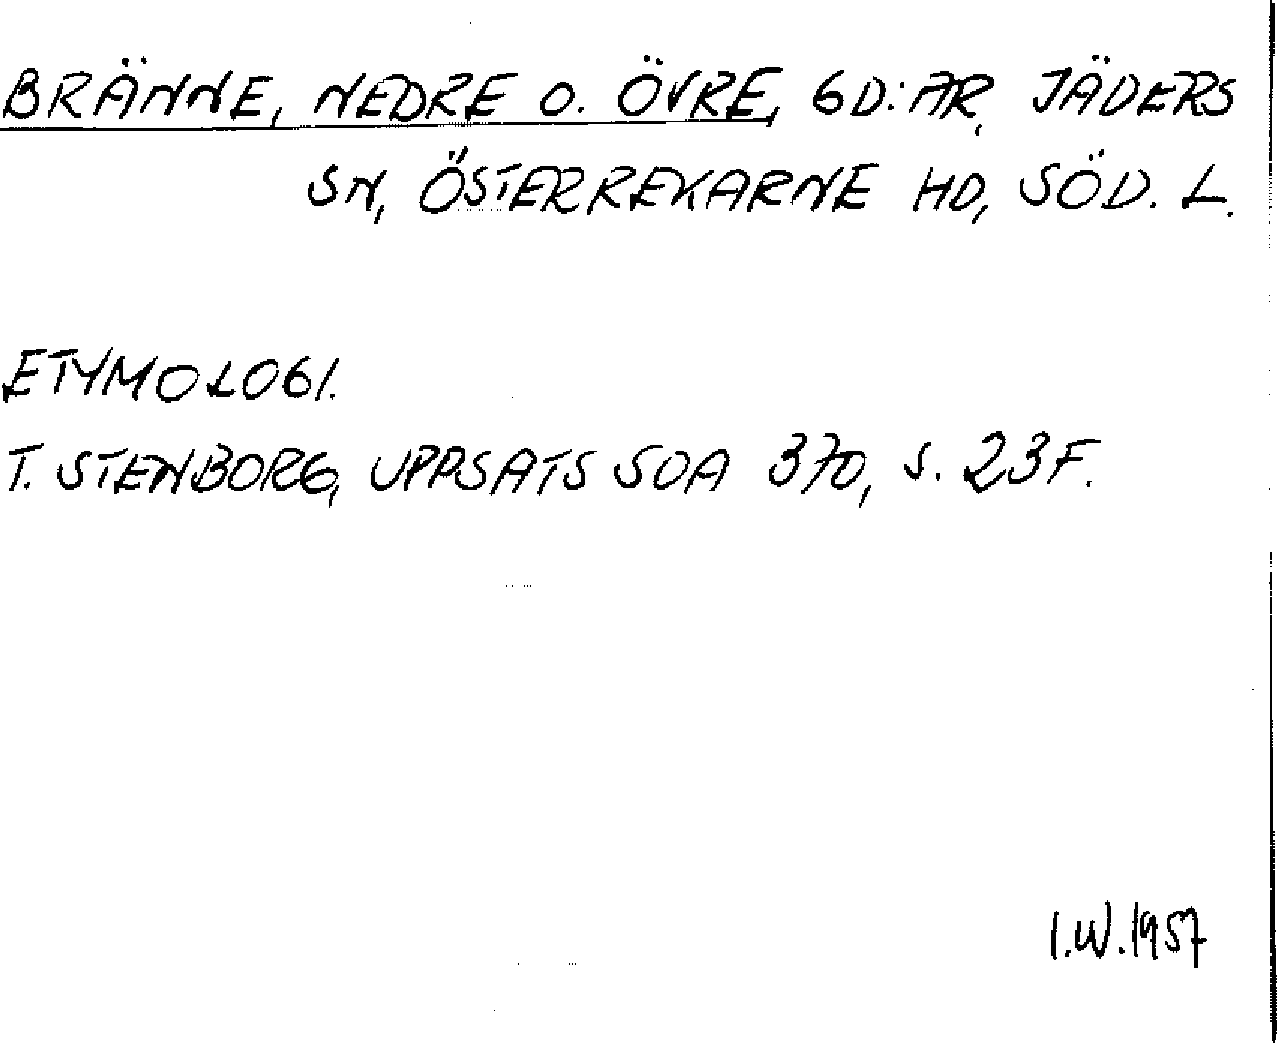 BRÄNNE, NEDRE O. ÖVRE, GD:AR, JÄDERS
SN, ÖSTERREKARNE HD, SÖD. L.
ETYMOLOGI.
T. STENBORG, UPPSATS SOA 370, S. 23F.
I.W.1957